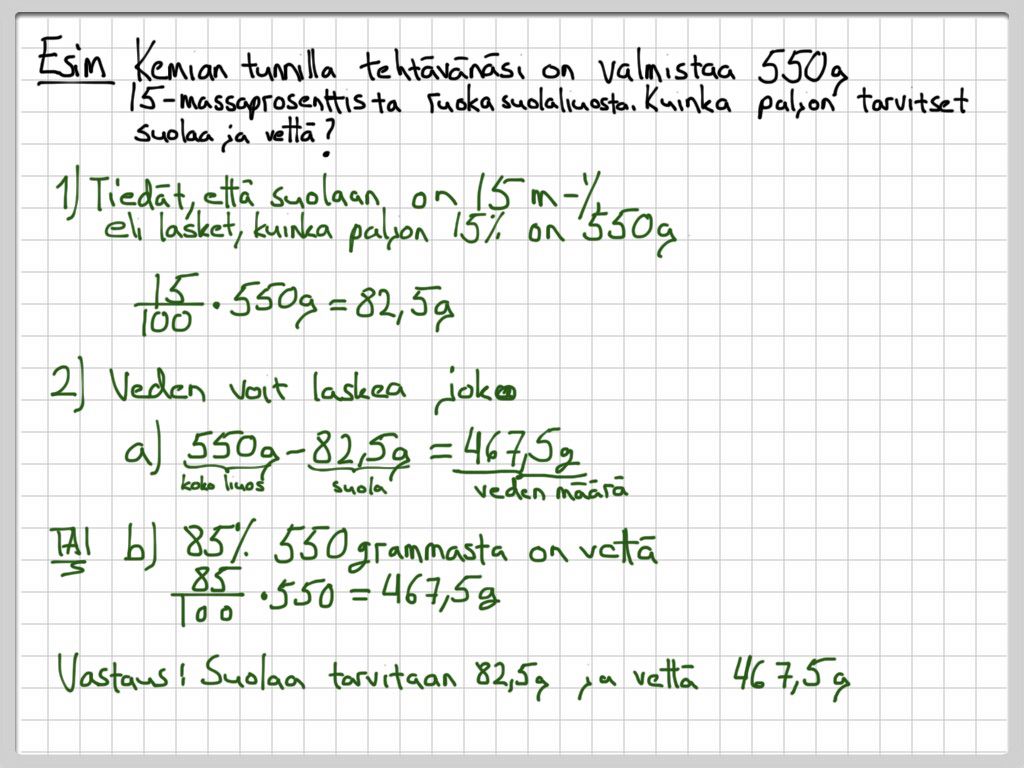 Esim Kemian tunnilla tehtävänäsi on valmistaa 550g
15-massaprosenttista ruokasuolaliuosta. Kuinka paljon tarvitset
suolaa ja vettä?
1) Tiedät, että suolaan on 15 m-%
eli lasket, kuinka paljon 15% on 550g
15/100 · 550g = 82,5g
2) Veden voit laskea joko
a) 550g - 82,5g = 467,5g
koko liuos suola veden määrä
TAI b) 85% 550 grammasta on vettä
85/100 · 550 = 467,5g
Vastaus: Suolaa tarvitaan 82,5g ja vettä 467,5g